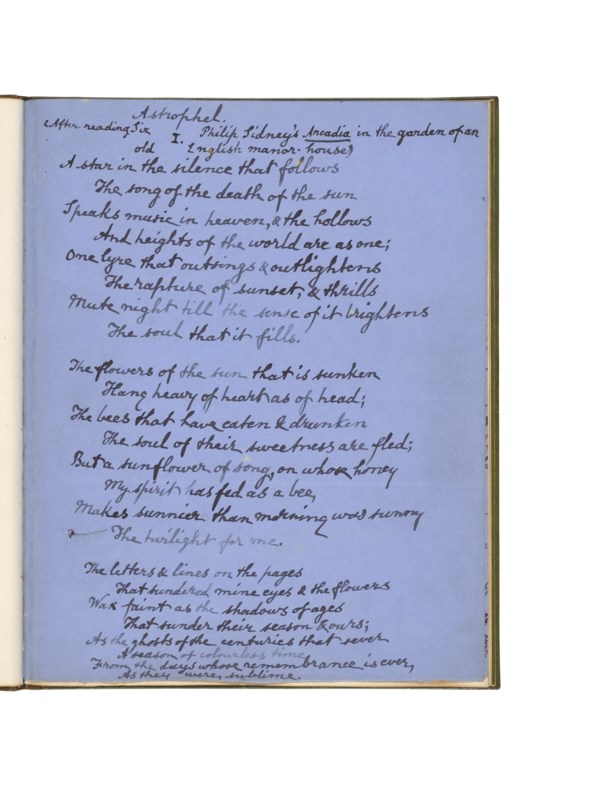 Astrophel.
(After reading Sir Philip Sidney's Arcadia in the garden of an
old English manor-house)
I.
A star in the silence that follows
The song of the death of the sun
Speaks music in heaven, & the hollows
And heights of the world are as one;
One lyre that outsings & outlightens
The rapture of sunset, & thrills
Mute night till the sense of it brightens
The soul that it fills.
The flowers of the sun that is sunken
Hang heavy of heart as of head;
The bees that have eaten & drunken
The soul of their sweetness are fled;
But a sunflower of song, on whose honey
My spirit has fed as a bee,
Makes sunnier than morning was sunny
The twilight for me.
The letters & lines on the pages
That sundered mine eyes & the flowers
Wax faint as the shadows of ages
That sunder their season & ours;
As the ghosts of the centuries that sever
A season of colourless time
From the days whose remembrance is ever,
As they were, sublime.